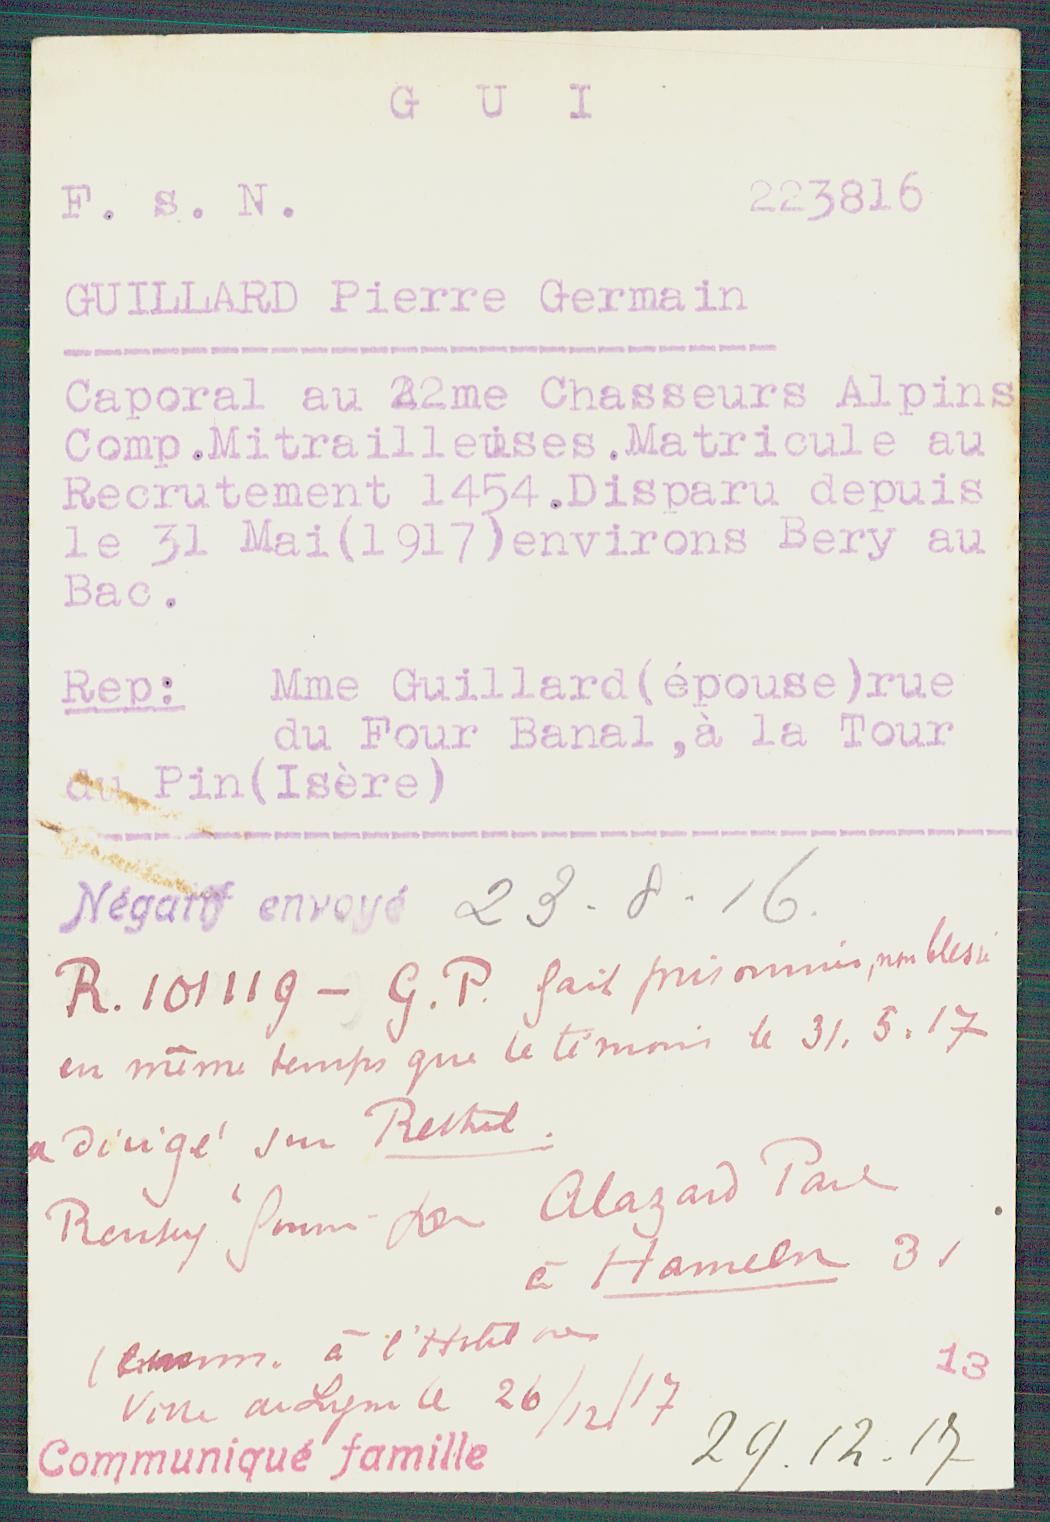 G U I
F. s. N. 223816
GUILLARD Pierre Germain
Caporal au 22me Chasseurs Alpins
Comp.Mitrailleuses.Matricule au
Recrutement 1454.Disparu depuis
le 31 Mai(1917)environs Bery au
Bac.
Rep: Mme Guillard(épouse)rue
du Four Banal,à la Tour
du Pin(Isère)
Négatif envoyé 23-8-16.
R. 101119 - G.P. fait prisonnier, non blessé
en même temps que le témoin le 31.5.17
a dirigé sur Rethel.
par Alazard Paul
à Hameln 31
à l'Hotel
Ville de Lyon le 26/12/17
13
Communiqué famille 29.12.17